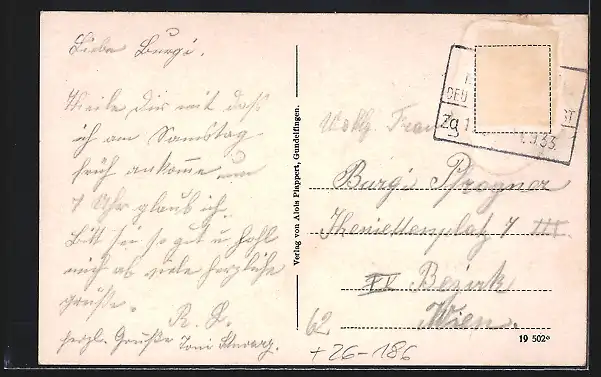 Liebe Burgi.
Theile Dir mit das
ich am Samstag
früh ankomme um
7 Uhr glaub ich.
Bitt sei so gut u. hohl
mich ab viele herzliche
grüße.
R. S.
herzl. Grüße Toni
Verlag von Alois Plappert, Gundelfingen.
Wohlg. Frau
Burgi Prognar
7 III.
IV Bezirk
Wien.
62
+26-186
19 502*
Zg 1